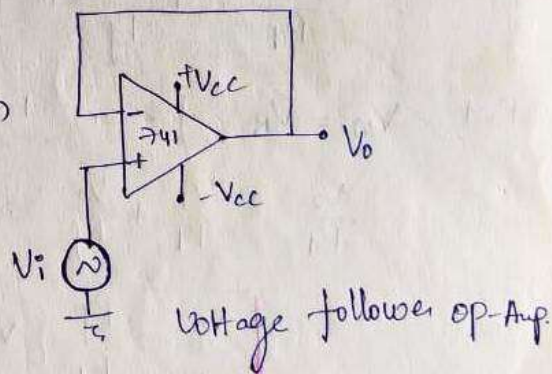 )
+Vcc
-
741
+
Vo
-Vcc
Vi
Voltage follower op-Amp.